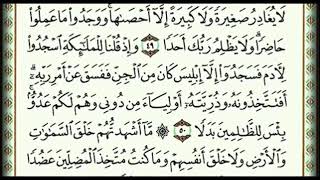 لَا يُغَادِرُ صَغِيرَةً وَلَا كَبِيرَةً إِلَّآ أَحْصَىٰهَا ۚ وَوَجَدُوا۟ مَا عَمِلُوا۟
حَاضِرًا ۗ وَلَا يَظْلِمُ رَبُّكَ أَحَدًا ٤٩ وَإِذْ قُلْنَا لِلْمَلَـٰٓئِكَةِ ٱسْجُدُوا۟
لِـَٔادَمَ فَسَجَدُوٓا۟ إِلَّآ إِبْلِيسَ كَانَ مِنَ ٱلْجِنِّ فَفَسَقَ عَنْ أَمْرِ رَبِّهِۦٓ ۗ
أَفَتَتَّخِذُونَهُۥ وَذُرِّيَّتَهُۥٓ أَوْلِيَآءَ مِن دُونِى وَهُمْ لَكُمْ عَدُوٌّۢ ۚ
بِئْسَ لِلظَّـٰلِمِينَ بَدَلًا ٥٠ ۞ مَّآ أَشْهَدتُّهُمْ خَلْقَ ٱلسَّمَـٰوَٰتِ
وَٱلْأَرْضِ وَلَا خَلْقَ أَنفُسِهِمْ وَمَا كُنتُ مُتَّخِذَ ٱلْمُضِلِّينَ عَضُدًا